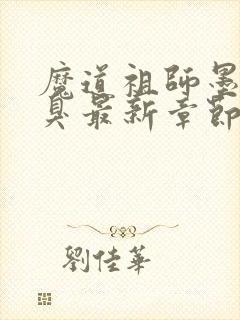 魔道祖師墨
臭最新章節
劉佳華